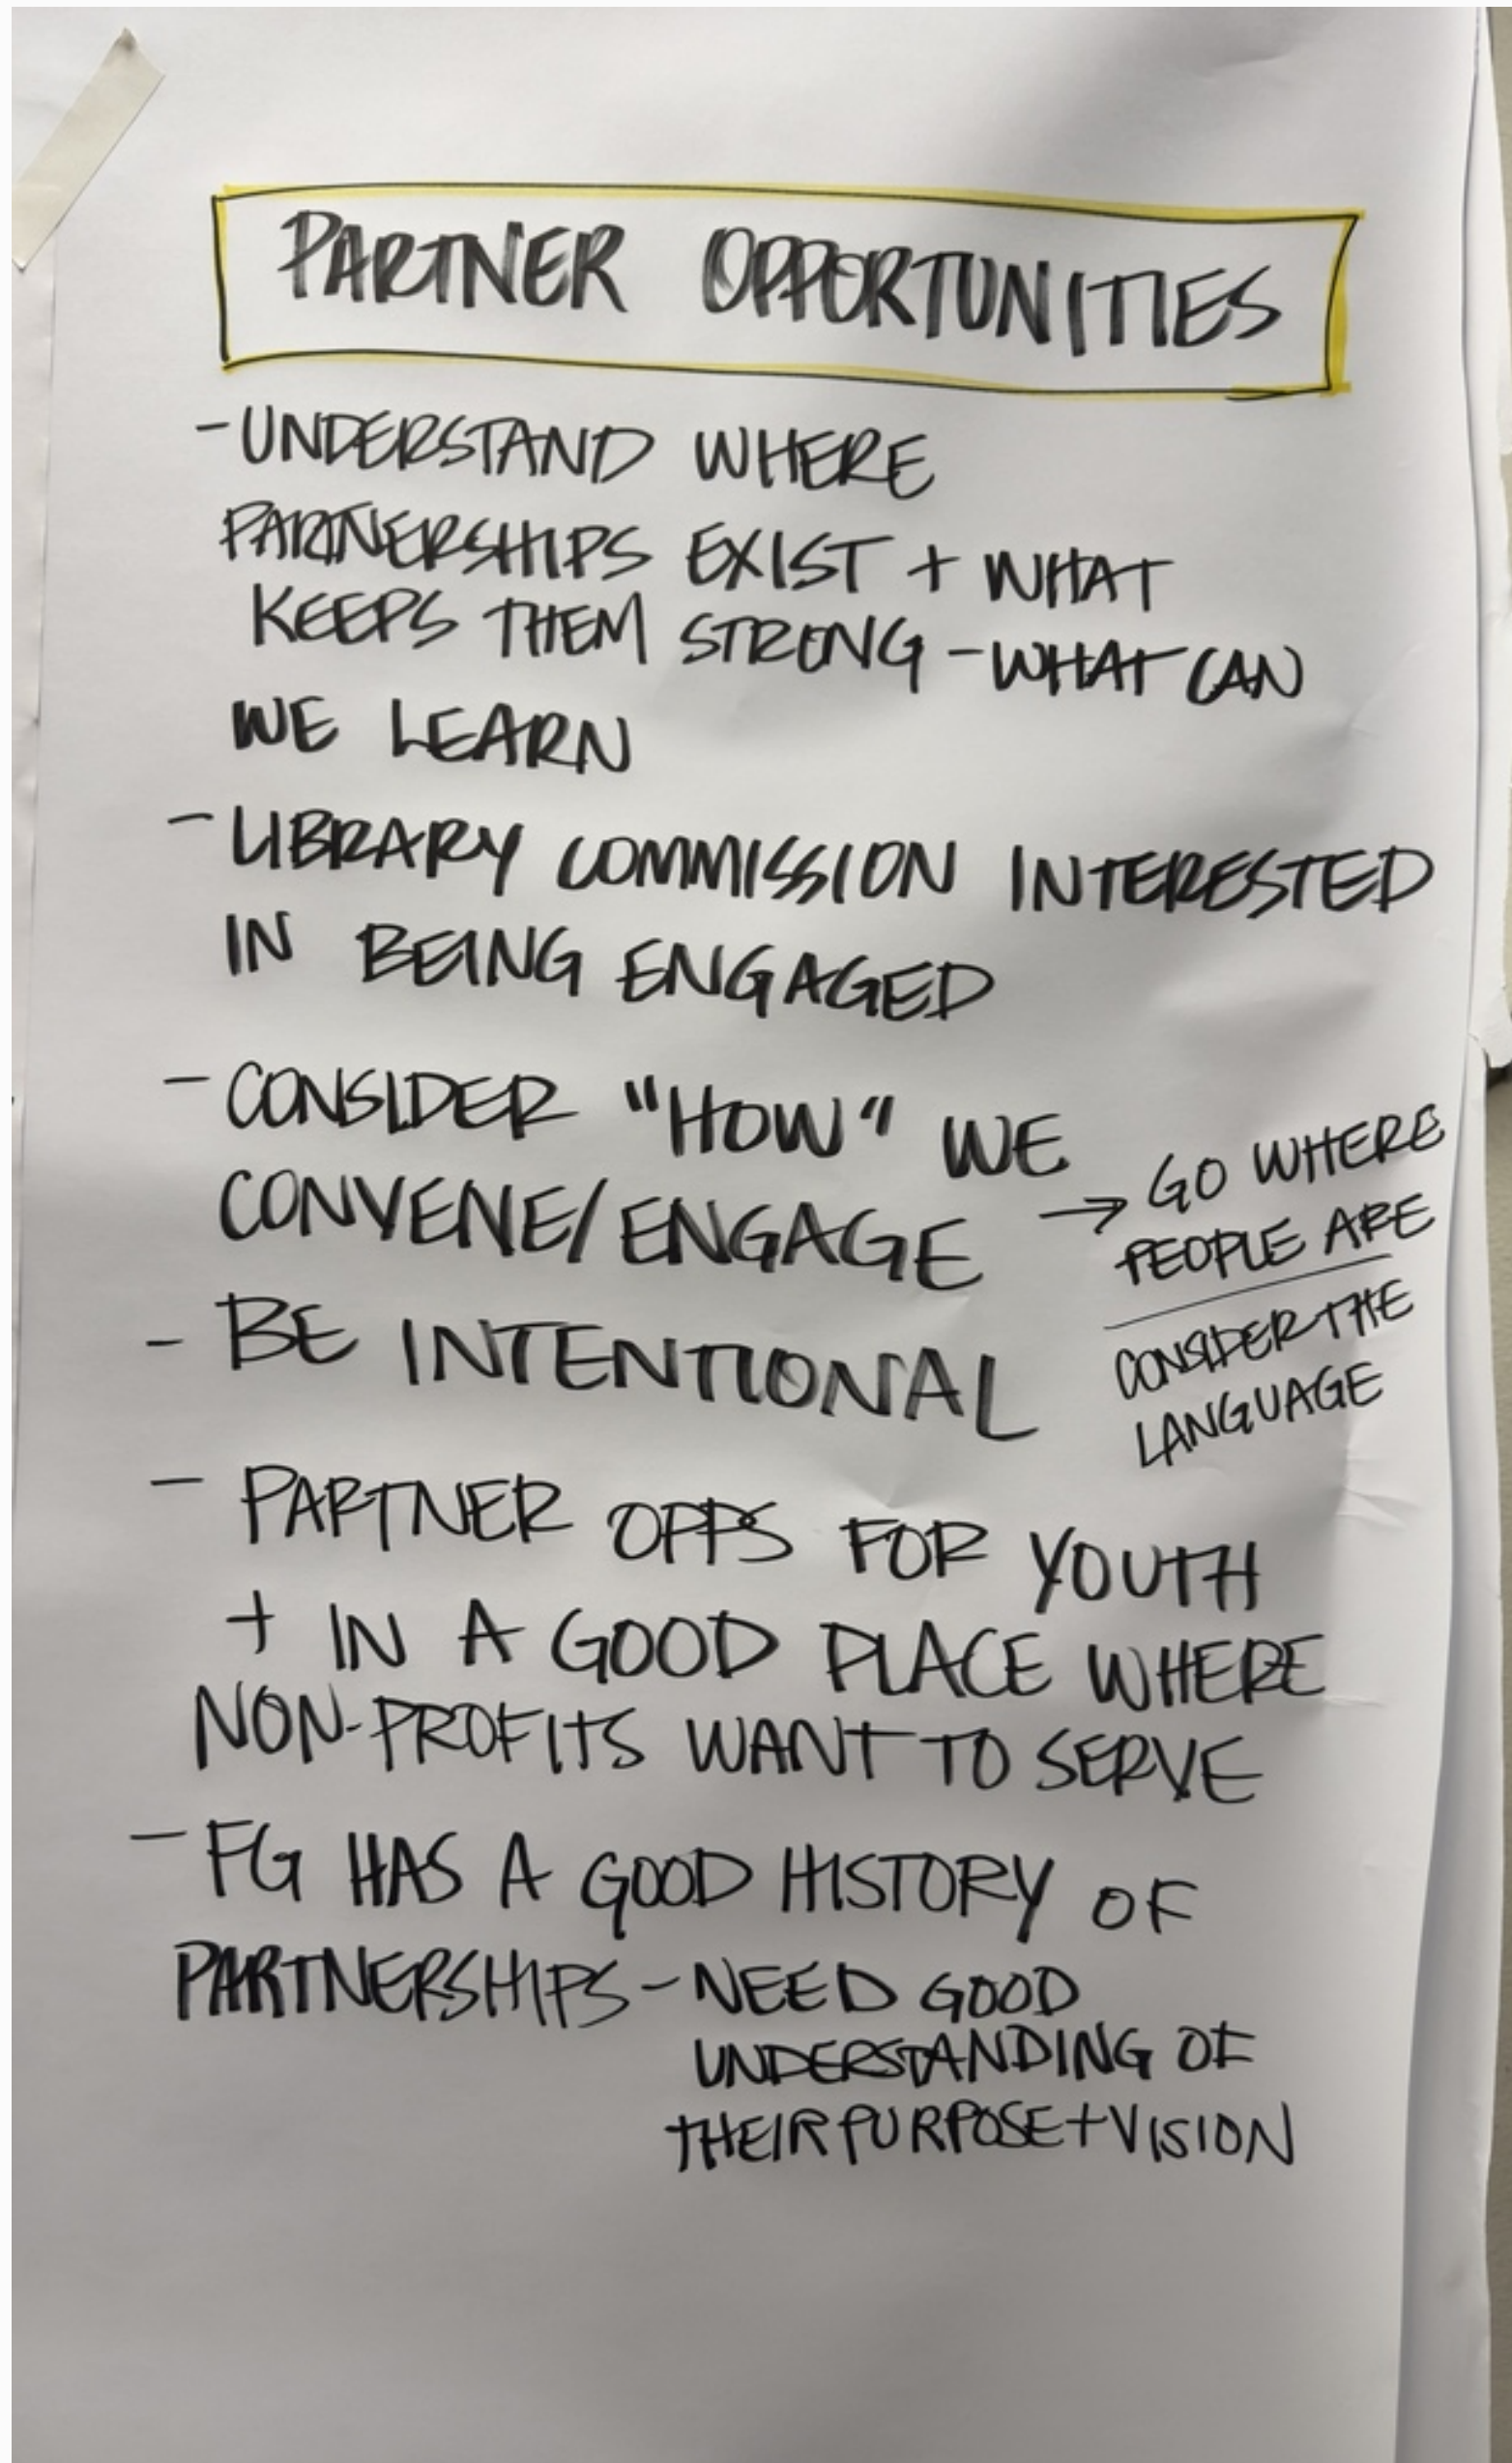 PARTNER OPPORTUNITIES
- UNDERSTAND WHERE
PARTNERSHIPS EXIST + WHAT
KEEPS THEM STRONG - WHAT CAN
WE LEARN
- LIBRARY COMMISSION INTERESTED
IN BEING ENGAGED
- CONSIDER "HOW" WE
CONVENE/ENGAGE
→ GO WHERE
PEOPLE ARE
CONSIDER THE
LANGUAGE
- BE INTENTIONAL
- PARTNER OPPS FOR YOUTH
+ IN A GOOD PLACE WHERE
NON-PROFITS WANT TO SERVE
- FG HAS A GOOD HISTORY OF
PARTNERSHIPS - NEED GOOD
UNDERSTANDING OF
THEIR PURPOSE + VISION